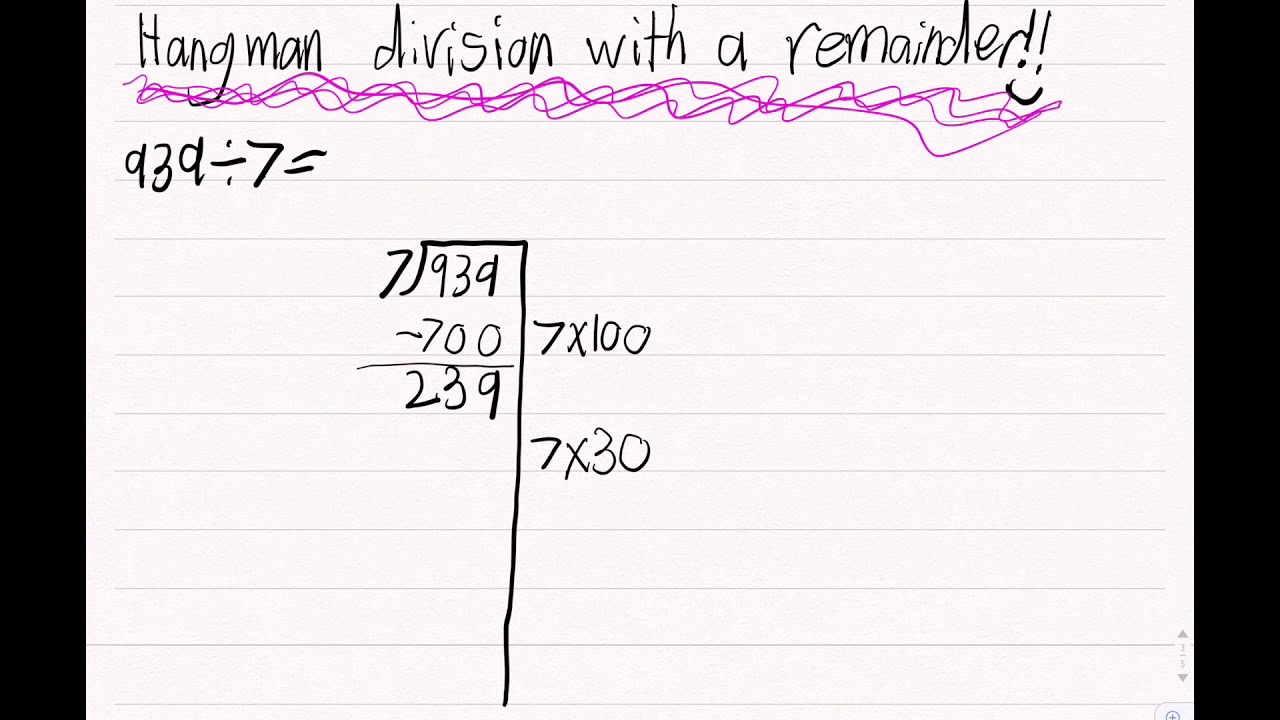 Hangman division with a remainder!!
939÷7=
7)939
-700 7x100
239
7x30
3
5